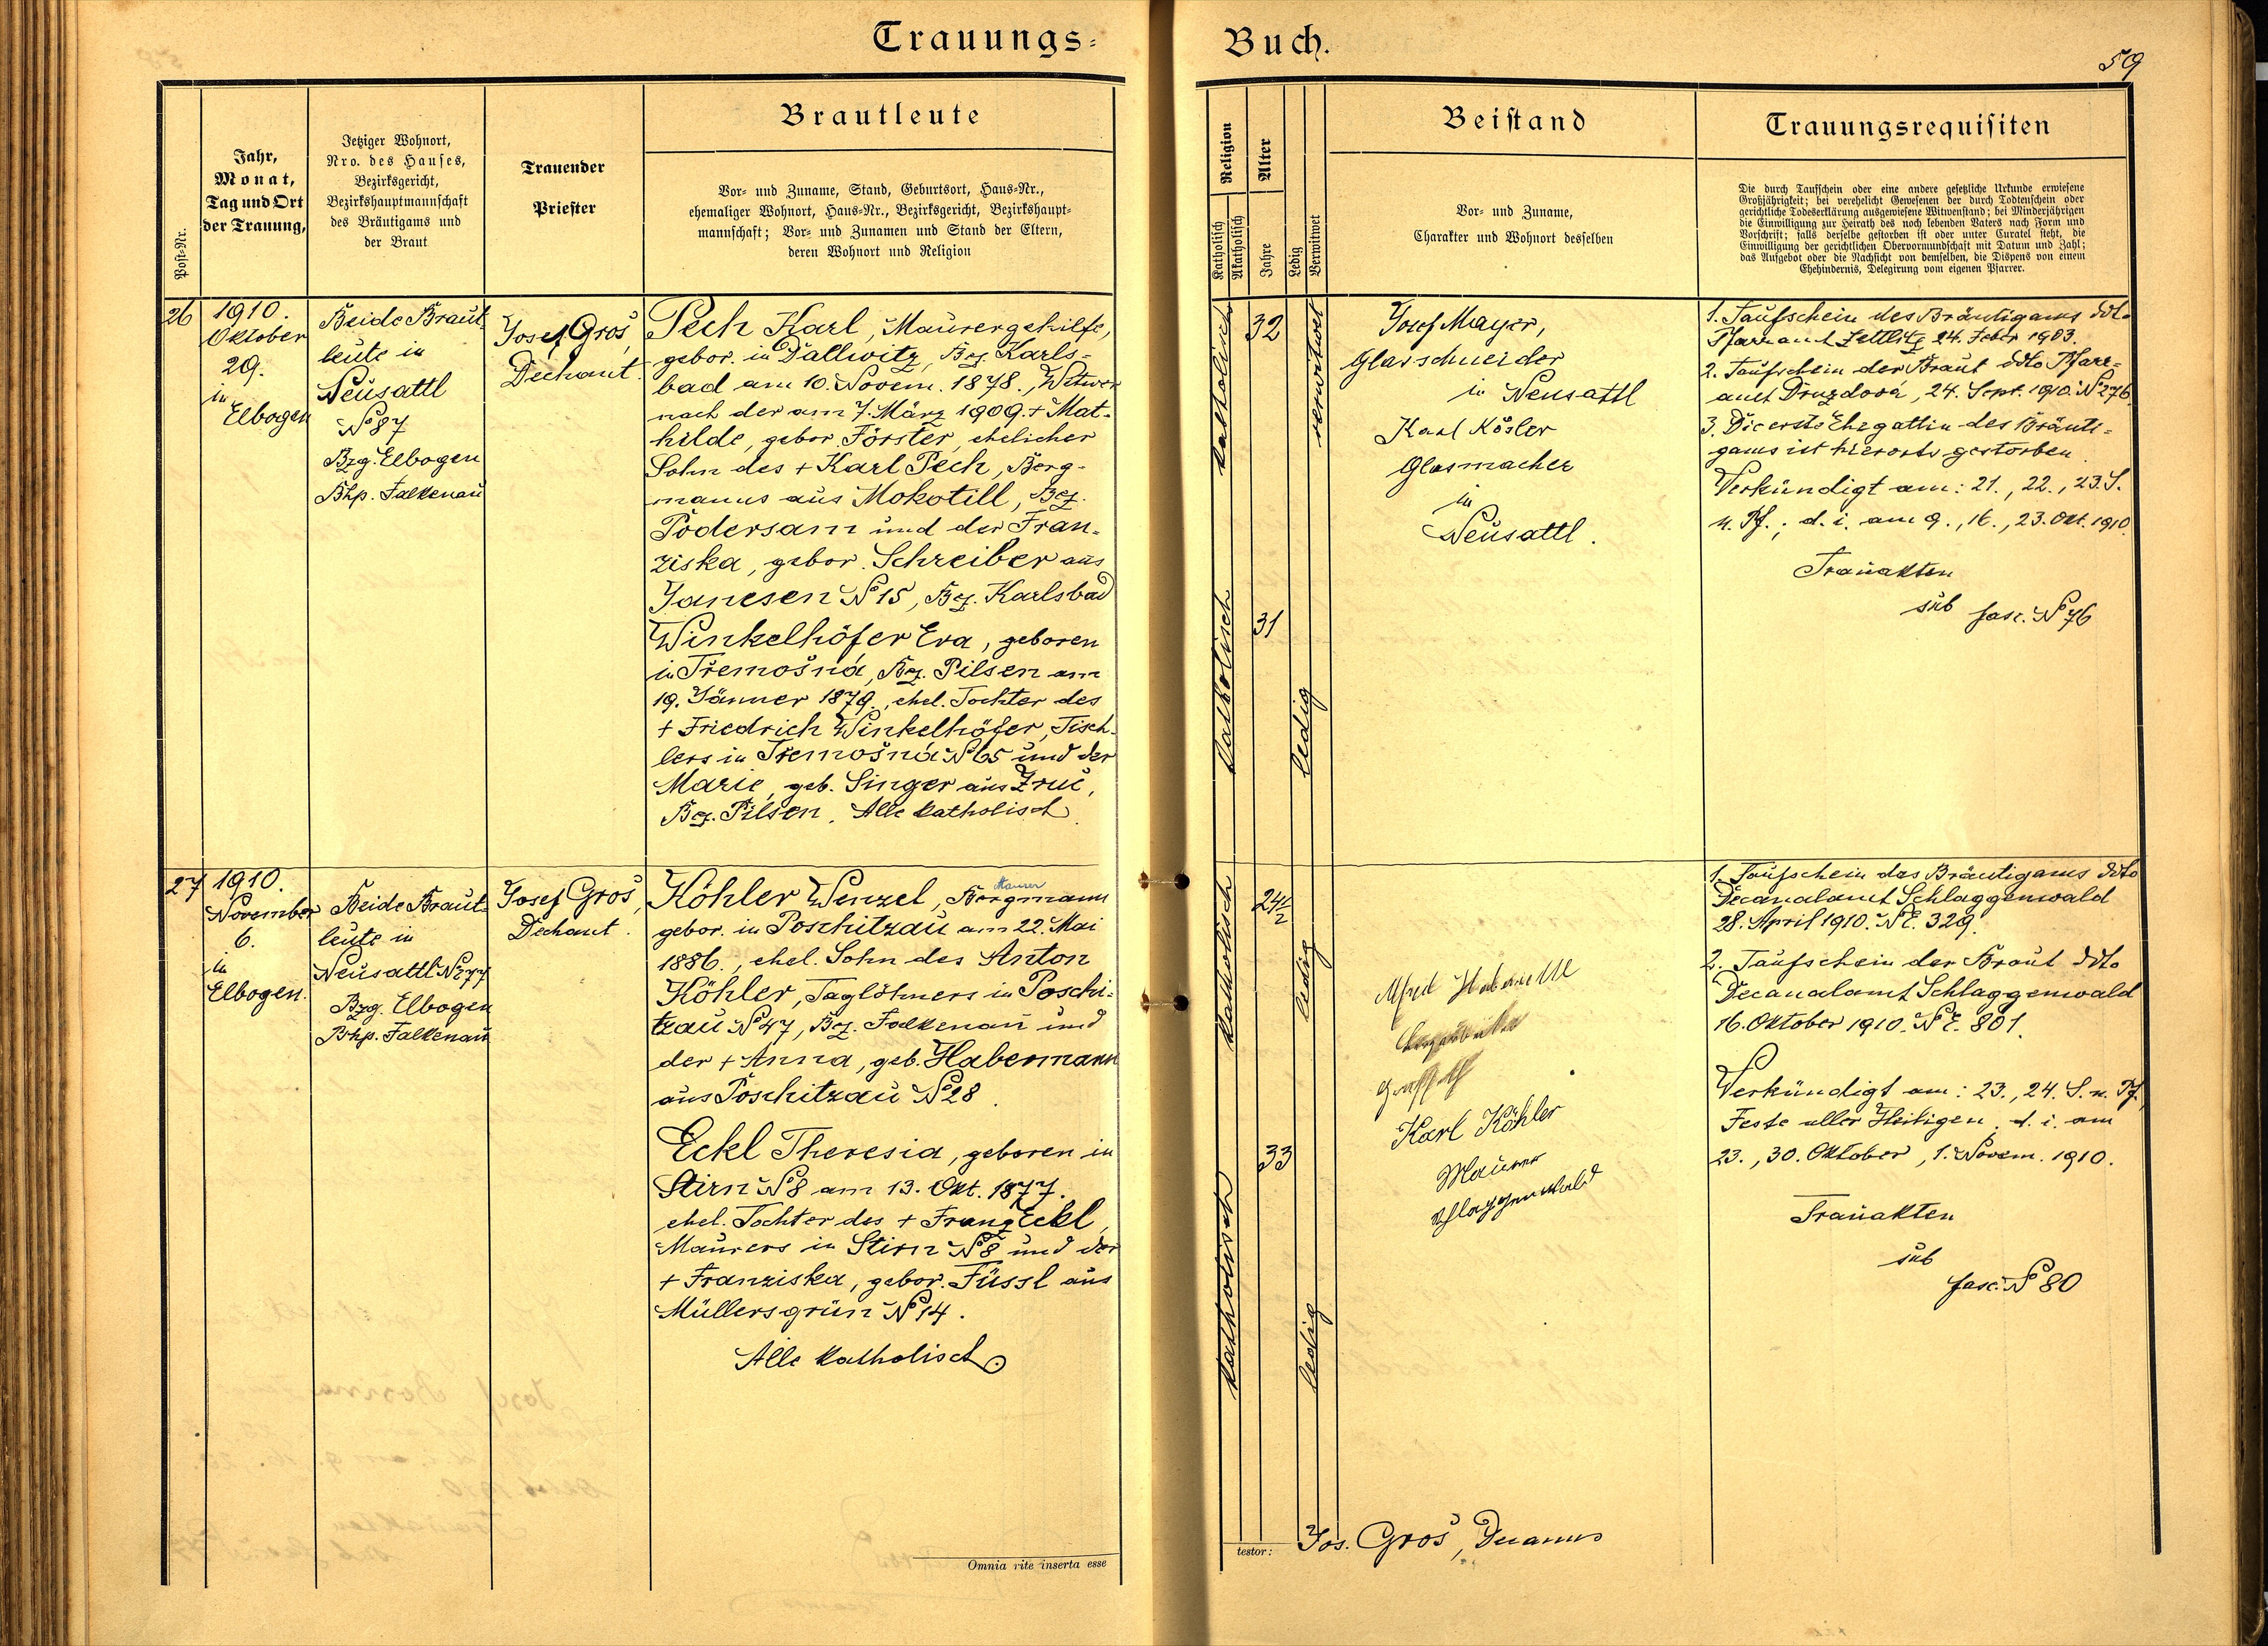 Trauungs-
Buch.
59
Post-Nr.
Jahr,
Monat,
Tag und Ort
der Trauung,
Jetziger Wohnort,
Nro. des Hauses,
Bezirksgericht,
Bezirkshauptmannschaft
des Bräutigams und
der Braut
Trauender
Priester
Brautleute
Vor- und Zuname, Stand, Geburtsort, Haus-Nr.,
ehemaliger Wohnort, Haus-Nr., Bezirksgericht, Bezirkshaupt-
mannschaft; Vor- und Zunamen und Stand der Eltern,
deren Wohnort und Religion
Religion
Katholisch
Akatholisch
Alter
Jahre
Ledig
Verwitwet
Beistand
Vor- und Zuname,
Charakter und Wohnort desselben
Trauungsrequisiten
Die durch Taufschein oder eine andere gesetzliche Urkunde erwiesene
Großjährigkeit; bei verehelicht Gewesenen der durch Todtenschein oder
gerichtliche Todeserklärung ausgewiesene Witwenstand; bei Minderjährigen
die Einwilligung zur Heirath des noch lebenden Vaters nach Form und
Vorschrift; falls derselbe gestorben ist oder unter Curatel steht, die
Einwilligung der gerichtlichen Obervormundschaft mit Datum und Zahl;
das Aufgebot oder die Nachsicht von demselben, die Dispens von einem
Ehehindernis, Delegirung vom eigenen Pfarrer.
26
1910.
Oktober
29.
in
Elbogen
Beide Braut-
leute in
Neusattl
No 87
Bzg. Elbogen
Bhp. Falkenau
Josef Groš,
Dechant.
Pech Karl, Maurergehilfe,
gebor. in Dallwitz, Bez. Karls-
bad am 10. Novem. 1878., Witwer
nach der am 7. März 1909. + Mat-
hilde, gebor. Förster, ehelicher
Sohn des + Karl Pech, Berg-
manns aus Mokotill, Bez.
Podersam und der Fran-
ziska, gebor. Schreiber aus
Janesen No 15, Bez. Karlsbad
Winkelhöfer Eva, geboren
in Třemošná, Bez. Pilsen am
19. Jänner 1879., ehel. Tochter des
+ Friedrich Winkelhöfer, Tisch-
lers in Třemošná No 65 und der
Marie, geb. Singer aus Zruč,
Bez. Pilsen. Alle katholisch.
katholisch
32
verwitwet
katholisch
31
ledig
Josef Mayer,
Glasschneider
in Neusattl
Karl Kösler
Glasmacher
in
Neusattl.
1. Taufschein des Bräutigams ddto
Pfarramt Zettlitz 24. Feber 1903.
2. Taufschein der Braut ddto Pfarr-
amt Druzdová, 24. Sept. 1910. No 276
3. Die erste Ehegattin des Bräuti-
gams ist hierorts gestorben.
Verkündigt am: 21., 22., 23. S.
n. Pf.; d. i. am 9., 16., 23. Okt. 1910.
Trauakten
sub fasc. No 76
27
1910.
November
6.
in
Elbogen.
Beide Braut-
leute in
Neusattl No 277
Bzg. Elbogen
Bhp. Falkenau
Josef Groš,
Dechant.
Maurer
Köhler Wenzel, Bergmann
gebor. in Poschitzau am 22. Mai
1886., ehel. Sohn des Anton
Köhler, Taglöhners in Poschi-
tzau No 47, Bez. Falkenau und
der + Anna, geb. Habermann
aus Poschitzau No 28.
Eckl Theresia, geboren in
Stirn No 8 am 13. Okt. 1877.
ehel. Tochter des + Franz Eckl,
Maurers in Stirn No 8 und der
+ Franziska, gebor. Füssl aus
Müllersgrün No 14.
Alle katholisch.
katholisch
24 1/2
ledig
katholisch
33
ledig
Alfred
Karl Köhler
Maurer
Schlaggenwald
1. Taufschein des Bräutigams ddto
Decanalamt Schlaggenwald
28. April 1910. N. E. 329.
2. Taufschein der Braut ddto
Decanalamt Schlaggenwald
16. Oktober 1910. N. E. 801.
Verkündigt am: 23., 24. S. n. Pf.,
Feste aller Heiligen, d. i. am
23., 30. Oktober, 1. Novem. 1910.
Trauakten
sub
fasc. No 80
Omnia rite inserta esse
testor: Jos. Groš, Decanus